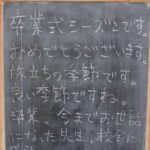 卒業式シーズンです。
おめでとうございます。
旅立ちの季節です。
良い季節ですね。
卒業、今までお世話
になった先生、校舎に